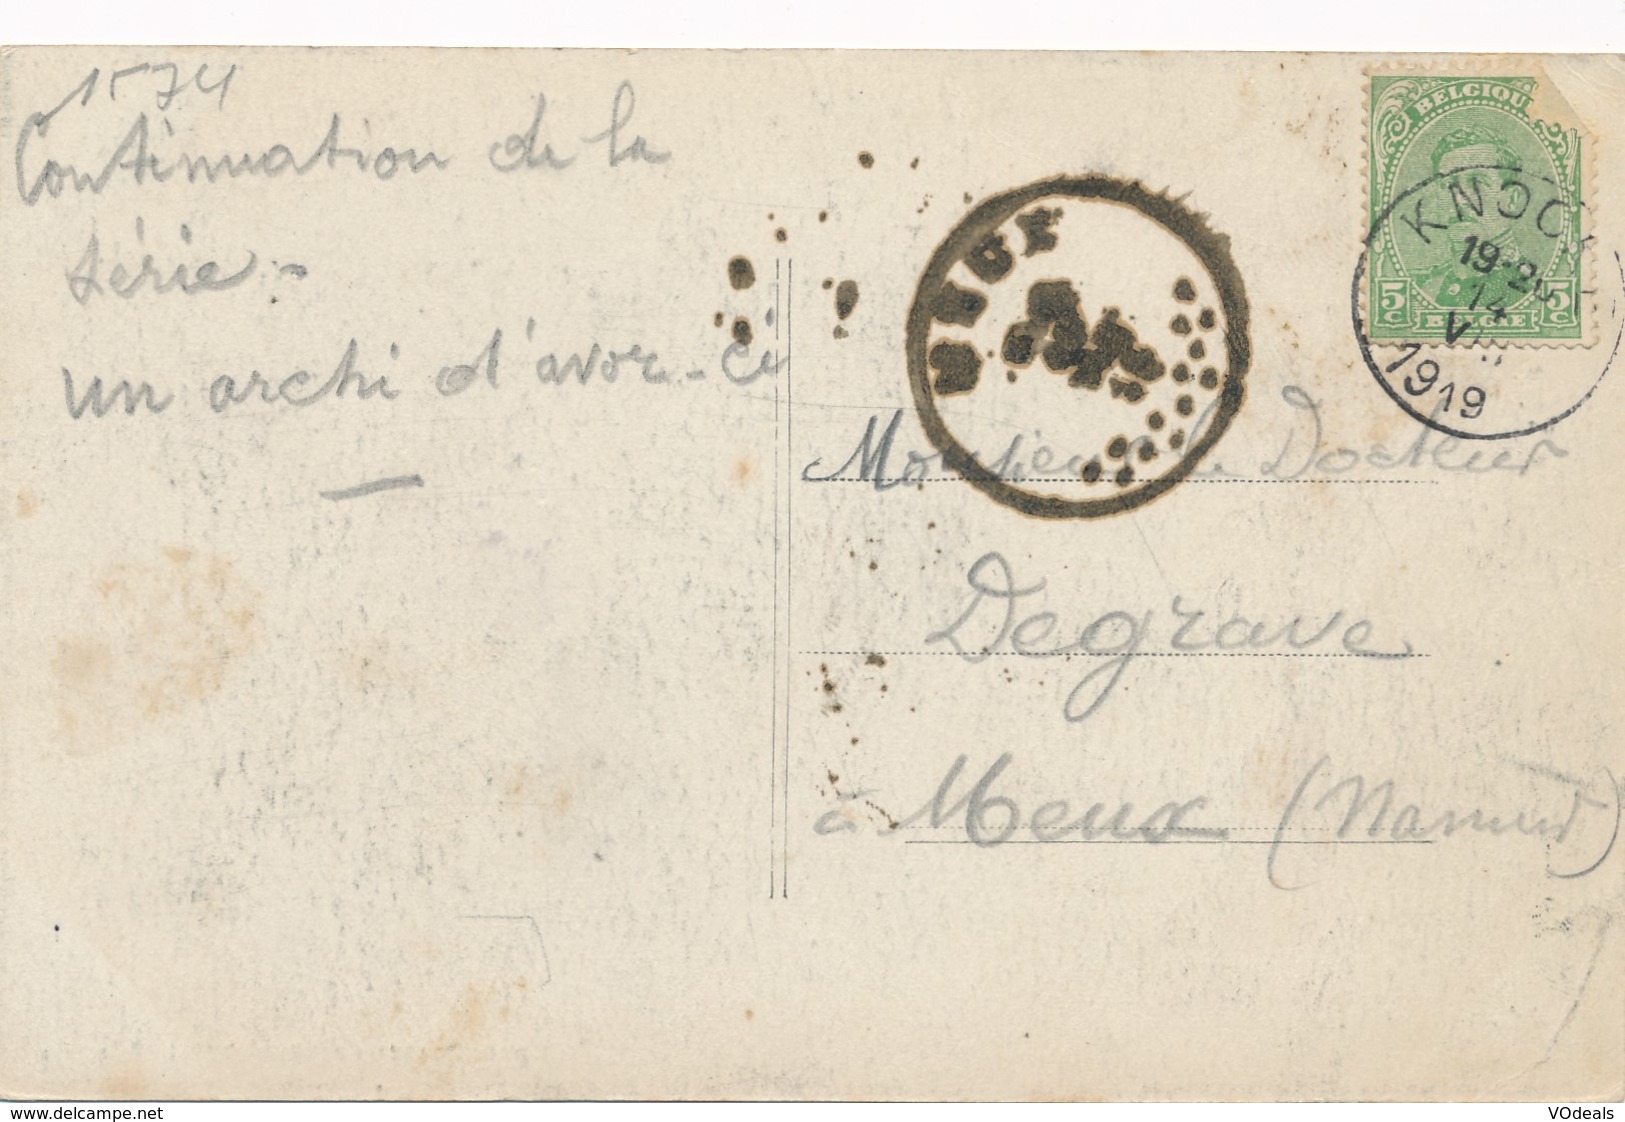 1574
Continuation de la
série -
un archi d'avor-ci
BELGIQU
KNOCK
19-20
14
VIII
1919
5c 5c
BELGIE
MEUX
Monsieur le Docteur
Degrave
à Meux (Namur)
www.delcampe.net
VOdeals